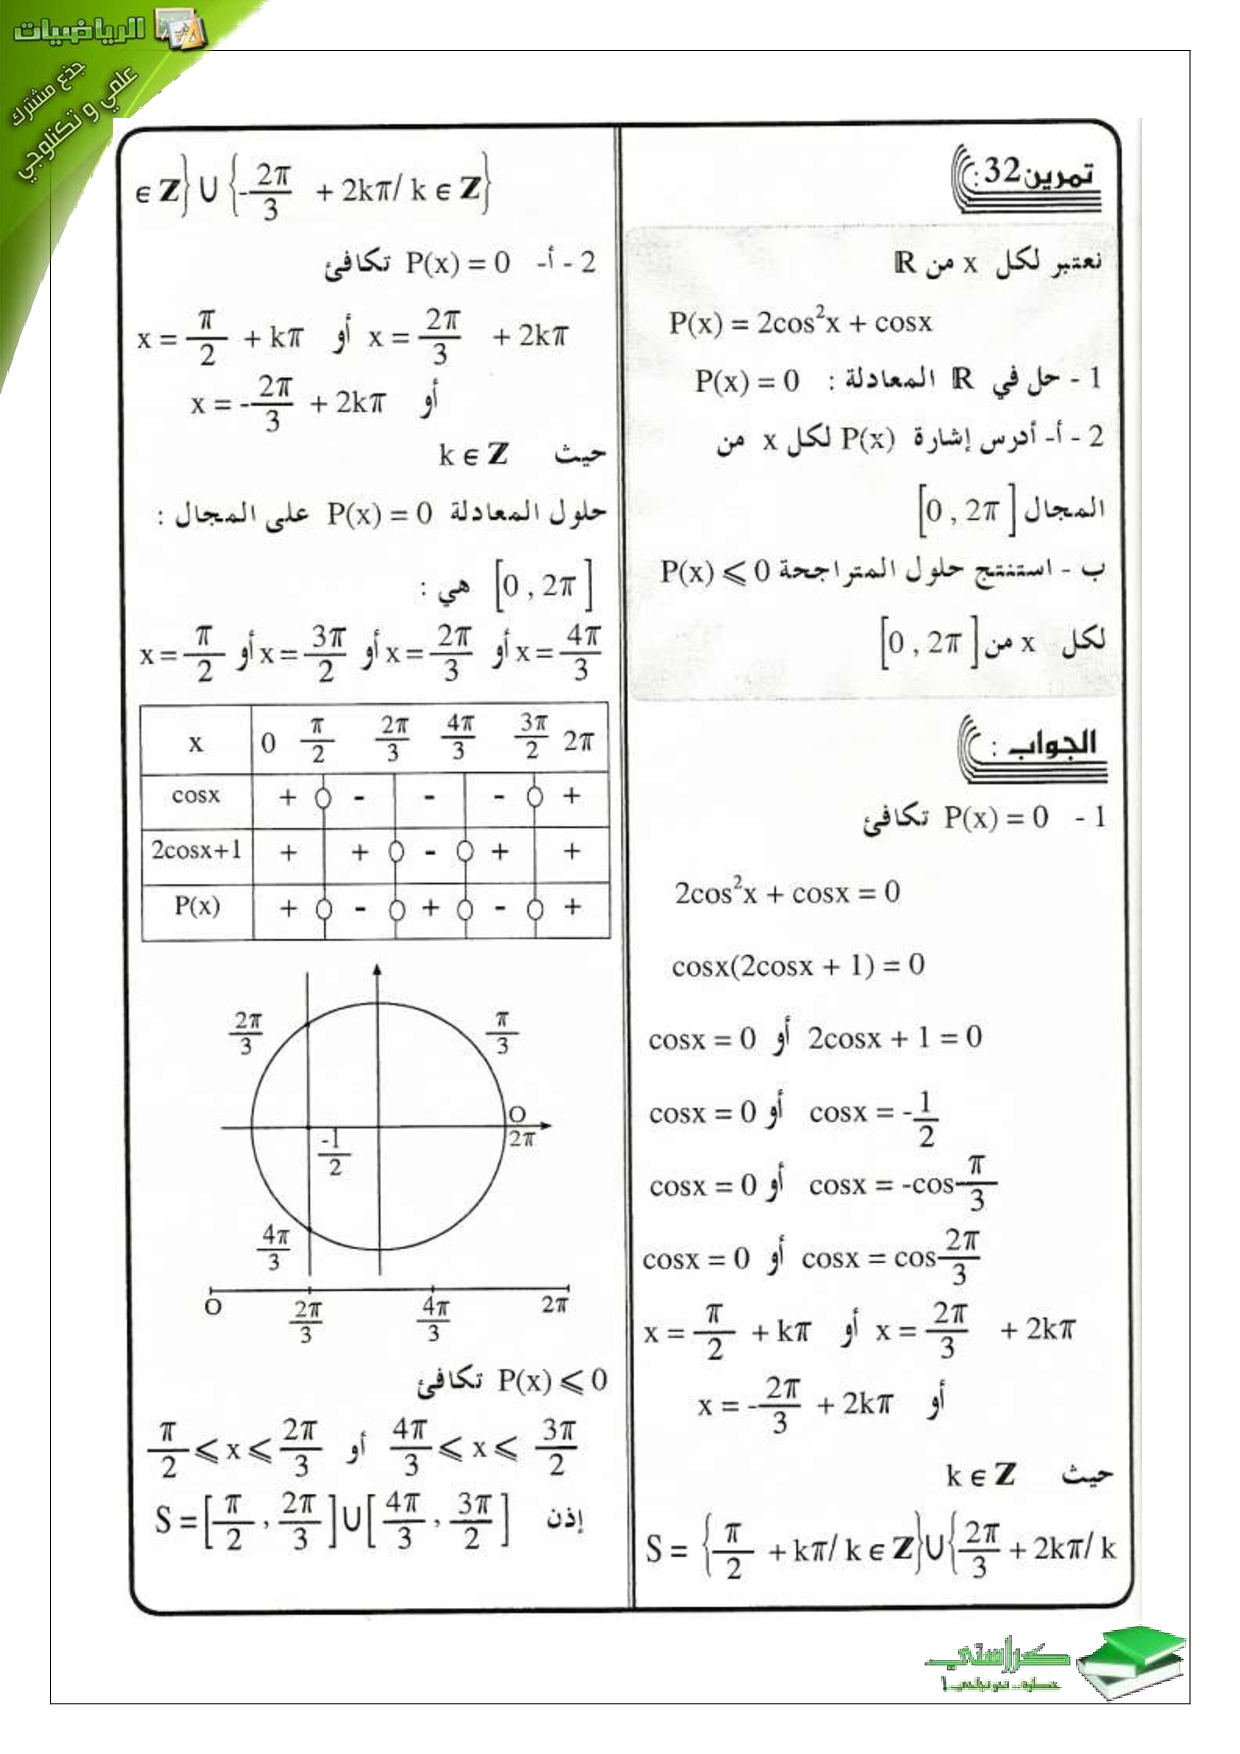 الرياضيات
جذع مشترك
علمي و تكنلوجي
تمرين32:
نعتبر لكل x من ℝ
P(x) = 2cos²x + cosx
1 - حل في ℝ المعادلة : P(x) = 0
2 - أ- أدرس إشارة P(x) لكل x من
المجال [0 , 2π]
ب - استنتج حلول المتراجحة P(x) ⩽ 0
لكل x من [0 , 2π]
الجواب :
1 - P(x) = 0 تكافئ
2cos²x + cosx = 0
cosx(2cosx + 1) = 0
cosx = 0 أو 2cosx + 1 = 0
cosx = 0 أو cosx = -1/2
cosx = 0 أو cosx = -cosπ/3
cosx = 0 أو cosx = cos2π/3
x = π/2 + kπ أو x = 2π/3 + 2kπ
أو x = -2π/3 + 2kπ
حيث k ∈ Z
S = {π/2 + kπ/ k ∈ Z}∪{2π/3 + 2kπ/ k
∈ Z} ∪ {-2π/3 + 2kπ/ k ∈ Z}
2 - أ- P(x) = 0 تكافئ
x = π/2 + kπ أو x = 2π/3 + 2kπ
أو x = -2π/3 + 2kπ
حيث k ∈ Z
حلول المعادلة P(x) = 0 على المجال :
[0 , 2π] هي :
x = π/2 أو x = 3π/2 أو x = 2π/3 أو x = 4π/3
x 0 π/2 2π/3 4π/3 3π/2 2π
cosx + 0 - - - 0 +
2cosx+1 + + 0 - 0 + +
P(x) + 0 - 0 + 0 - 0 +
2π/3 π/3
O
-1/2 2π
4π/3
O 2π/3 4π/3 2π
P(x) ⩽ 0 تكافئ
π/2 ⩽ x ⩽ 2π/3 أو 4π/3 ⩽ x ⩽ 3π/2
إذن S = [π/2 , 2π/3]∪[4π/3 , 3π/2]
كراستي